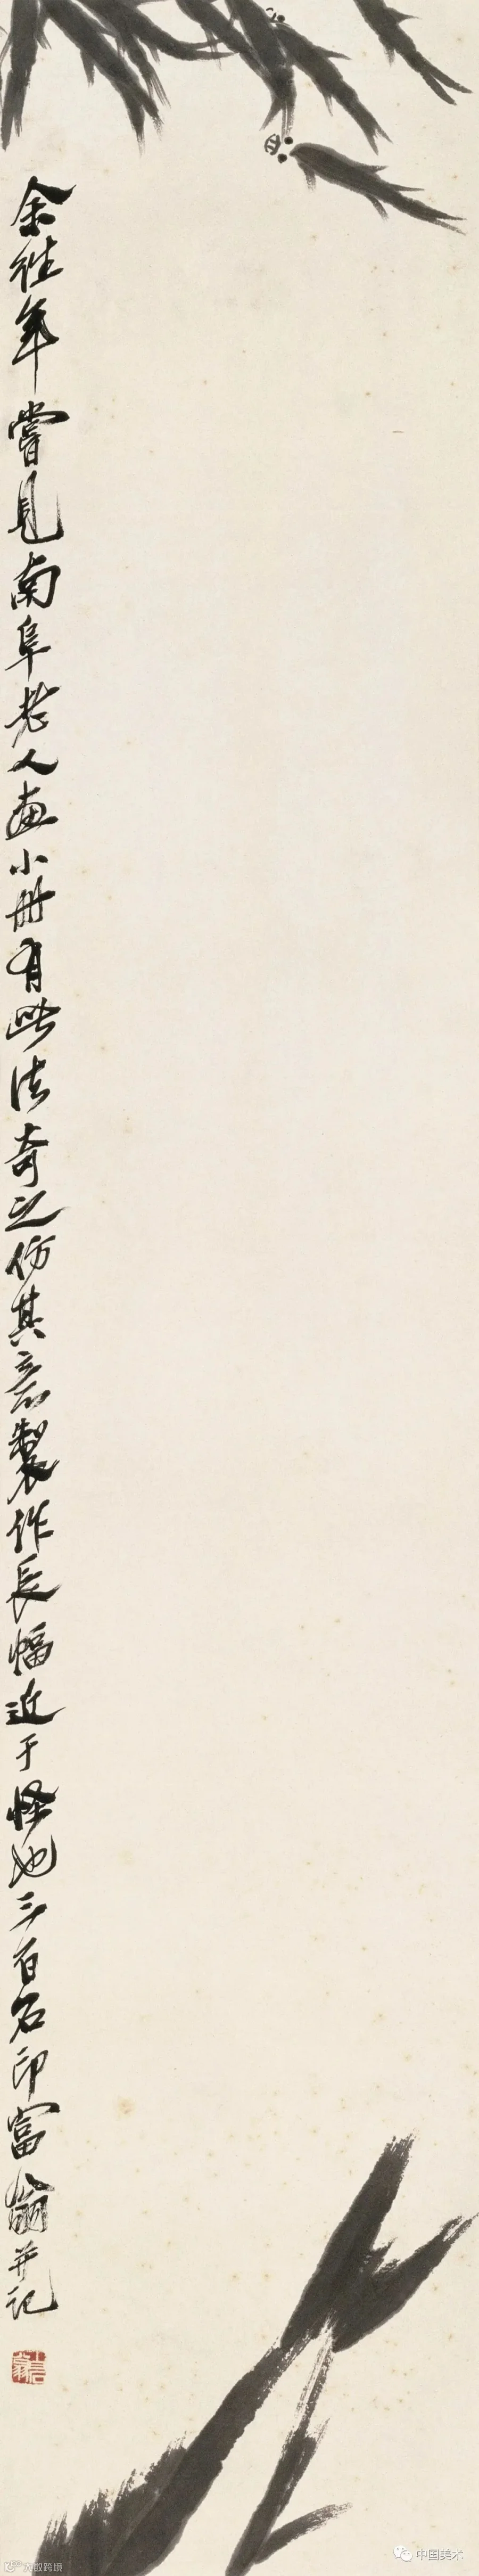 余往年嘗見南阜老人畫小冊有此法奇之仿其意製作長幅近于怪也三百石印富翁并记
中国美术
大数跨境